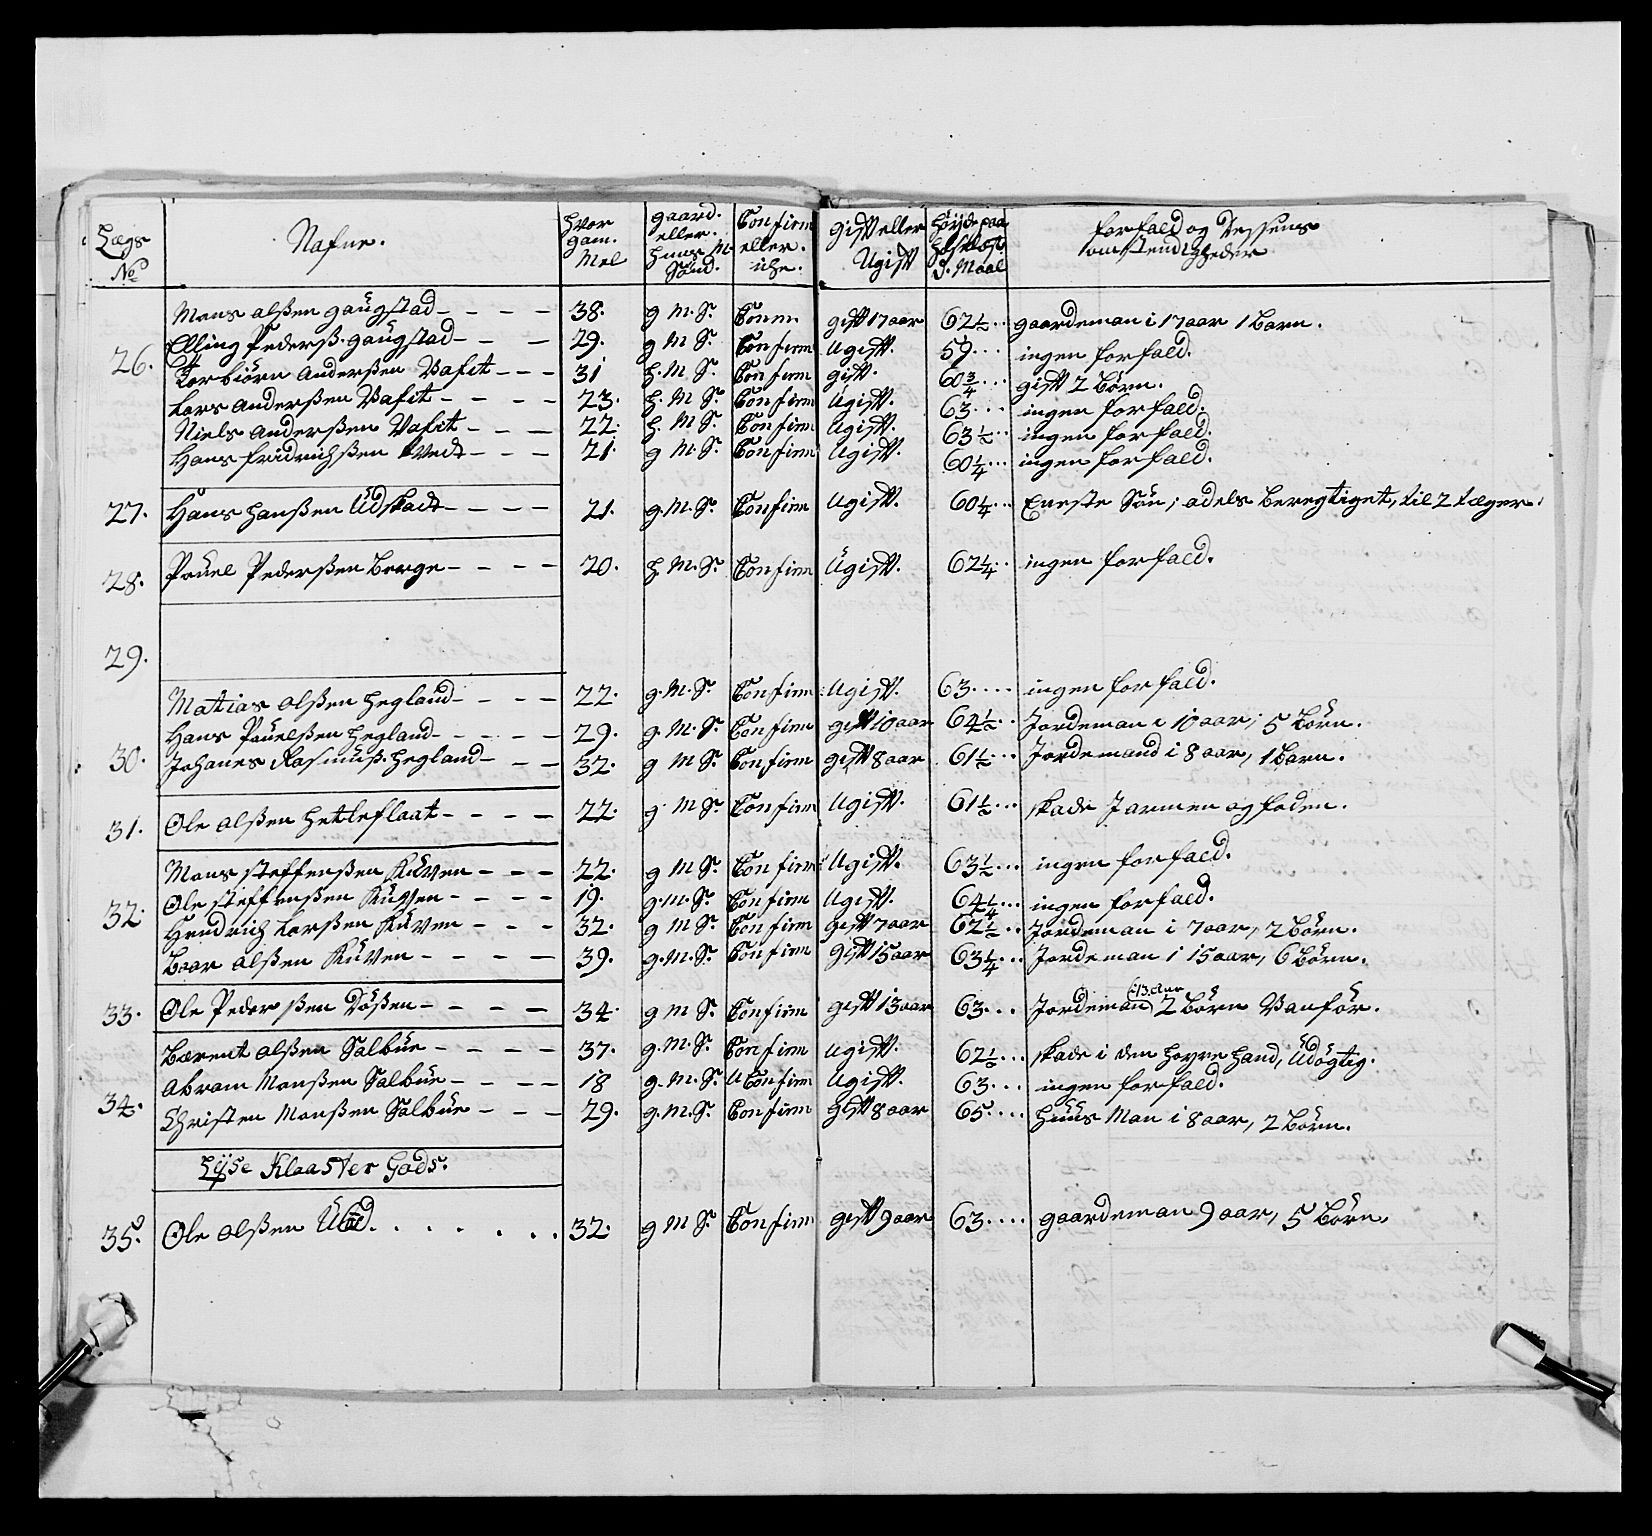 Lægs No Nafne. hvor gam. Mel gaard. eller. huus M. Sönd. Confirm eller. iche. gift eller Ugift höyde paa Forfald og dessens omstendigheder
Mons olßen gaügstad 38. g M. S. Confirm gift 17 aar 62 1/2 gaardeman i 17 aar 1 barn.
26. Elling Pederß. gaügstad 29. g M S. Confirm Ugift. 59 ingen forfald.
Torbiörn anderßen Vafit 31 h. M S. Confirm gift. 60 3/4 gift 2 börn.
Lars anderßen Vafit 23. h. M S. Confirm Ugift. 63 ingen forfald.
Niels anderßen Vafit 22. h. M S. Confirm Ugift. 63 1/2 ingen forfald.
Hans fridrichßen Vedt 21. g M. S. Confirm Ugift. 60 1/4 ingen forfald.
27. Hans hanßen Üdskadt 21. g. M. S. Confirm Ugift. 60 1/4 Eneste Sön; adels beregtiget, til 2 læger.
28. Poüel Pederßen Berge 20. h M. S. Confirm Ügift. 62 1/4 ingen forfald.
29.
Matias olßen hegland 22. g. M. S. Confirm Ugift. 63 ingen forfald.
Hans Poüelßen hegland 29. g. M. S. Confirm gift 10 aar 64 1/2 Jordeman i 10 aar, 5 börn.
30. Johanes Rasmüß. hegland 32. g M S. Confirm gift 8 aar 61 1/2 Jordemand i 8 aar, 1 barn.
31. Ole olßen hetleflaat 22. g. M S. Confirm Ugift. 61 1/2 skade J armen og foden.
Mons steffenßen Küven 22. g M S. Confirm Ugift. 63 1/2 ingen forfald.
32. Ole steffenßen Küven 19. g. M. S. Confirm Ugift. 64 1/4 ingen forfald.
Hendrich larßen Küven 32. g M S. Confirm gift 7 aar 62 1/2 Jordeman i 7 aar, 2 börn.
Baar olßen Küven 39. g. M. S. Confirm gift 15 aar 63 1/4 Jordeman i 15 aar, 6 börn.
33. Ole Pederßen Dößen 34. g M S. Confirm gift 13 aar 63 Jordeman i 13. Aar 2 börn Vanför.
Bærent olßen Salbüe 37. g. M. S. Confirm Ugift. 62 1/2 skade i den høyre hand, Üdögtig.
Abram Monßen Salbüe 18 g. M. S. U Confirm Ugift. 63 ingen forfald.
34. Christen Monßen Salbüe 29. g. M. S. Confirm gift 8 aar 65 huus Man i 8 aar, 2 börn.
Lyse Klaaster Gods.
35. Ole olßen 32. g M S. Confirm gift 9 aar 63 gaardeman 9 aar, 5 börn.